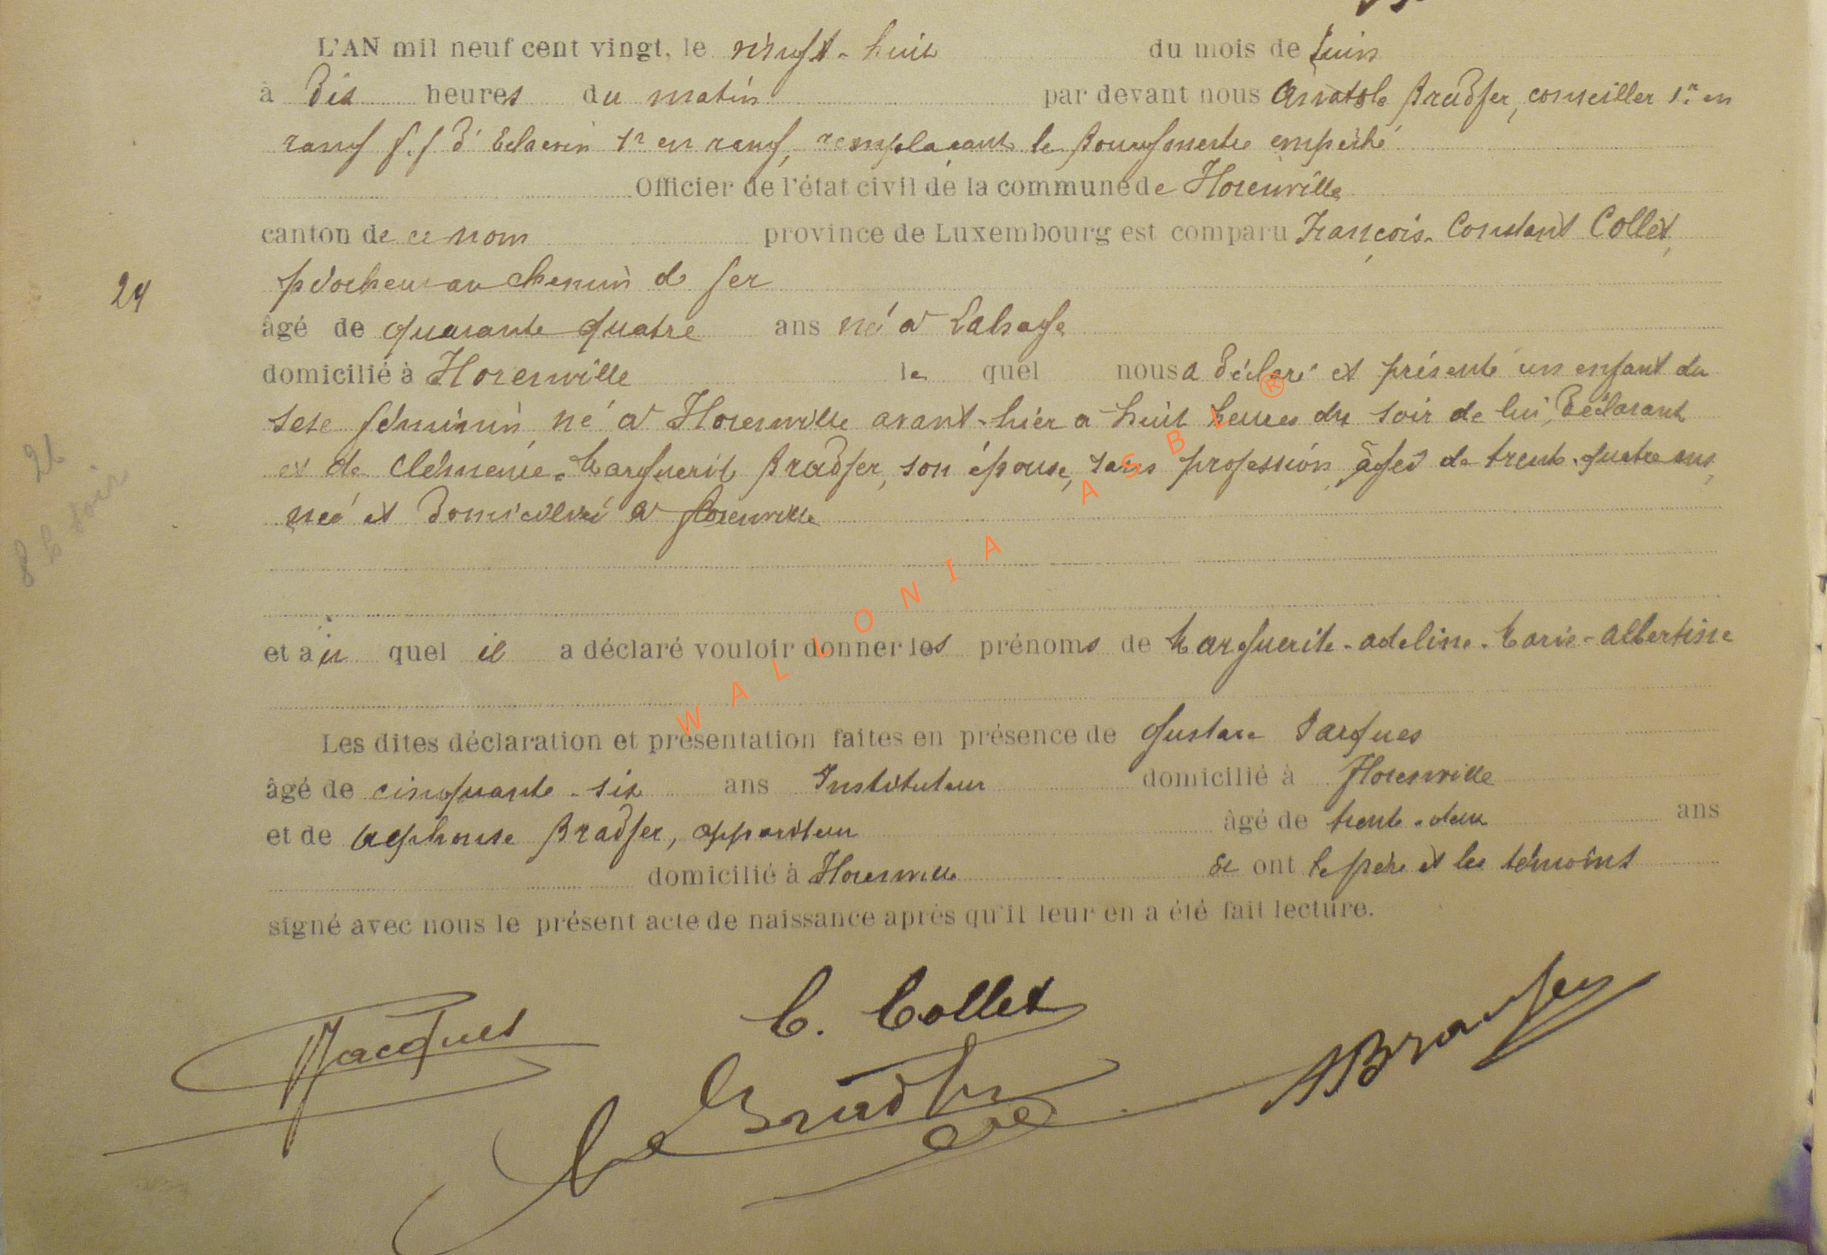 L'AN mil neuf cent vingt, le vingt-huit du mois de Juin
à dix heures du matin par devant nous Anatole Bradfer, conseiller 1r en
rang f.f d'Echevin 1r en rang, remplaçant le Bourgmestre empêché
Officier de l'état civil de la commune de Florenville
canton de ce nom province de Luxembourg est comparu François-Constant Collet,
piocheur au chemin de fer
24
âgé de quarante quatre ans né à Lahage
domicilié à Florenville le quel nous a déclaré et présenté un enfant du
sexe féminin, né à Florenville avant-hier à huit heures du soir de lui, Déclarant
et de Clémence-Marguerite Bradfer, son épouse, sans profession, âgée de trente-quatre ans,
née et domiciliée à Florenville
26
8 h soir
et au quel il a déclaré vouloir donner les prénoms de Marguerite-Adeline-Marie-Albertine
Les dites déclaration et présentation faites en présence de Gustave Jacques
âgé de cinquante-six ans Instituteur domicilié à Florenville
et de Alphonse Bradfer, appariteur âgé de trente-deux ans
domicilié à Florenville et ont le père et les témoins
signé avec nous le présent acte de naissance après qu'il leur en a été fait lecture.
WALLONIA ASBL ®
Jacques
C. Collet
Bradfer
ABradfer